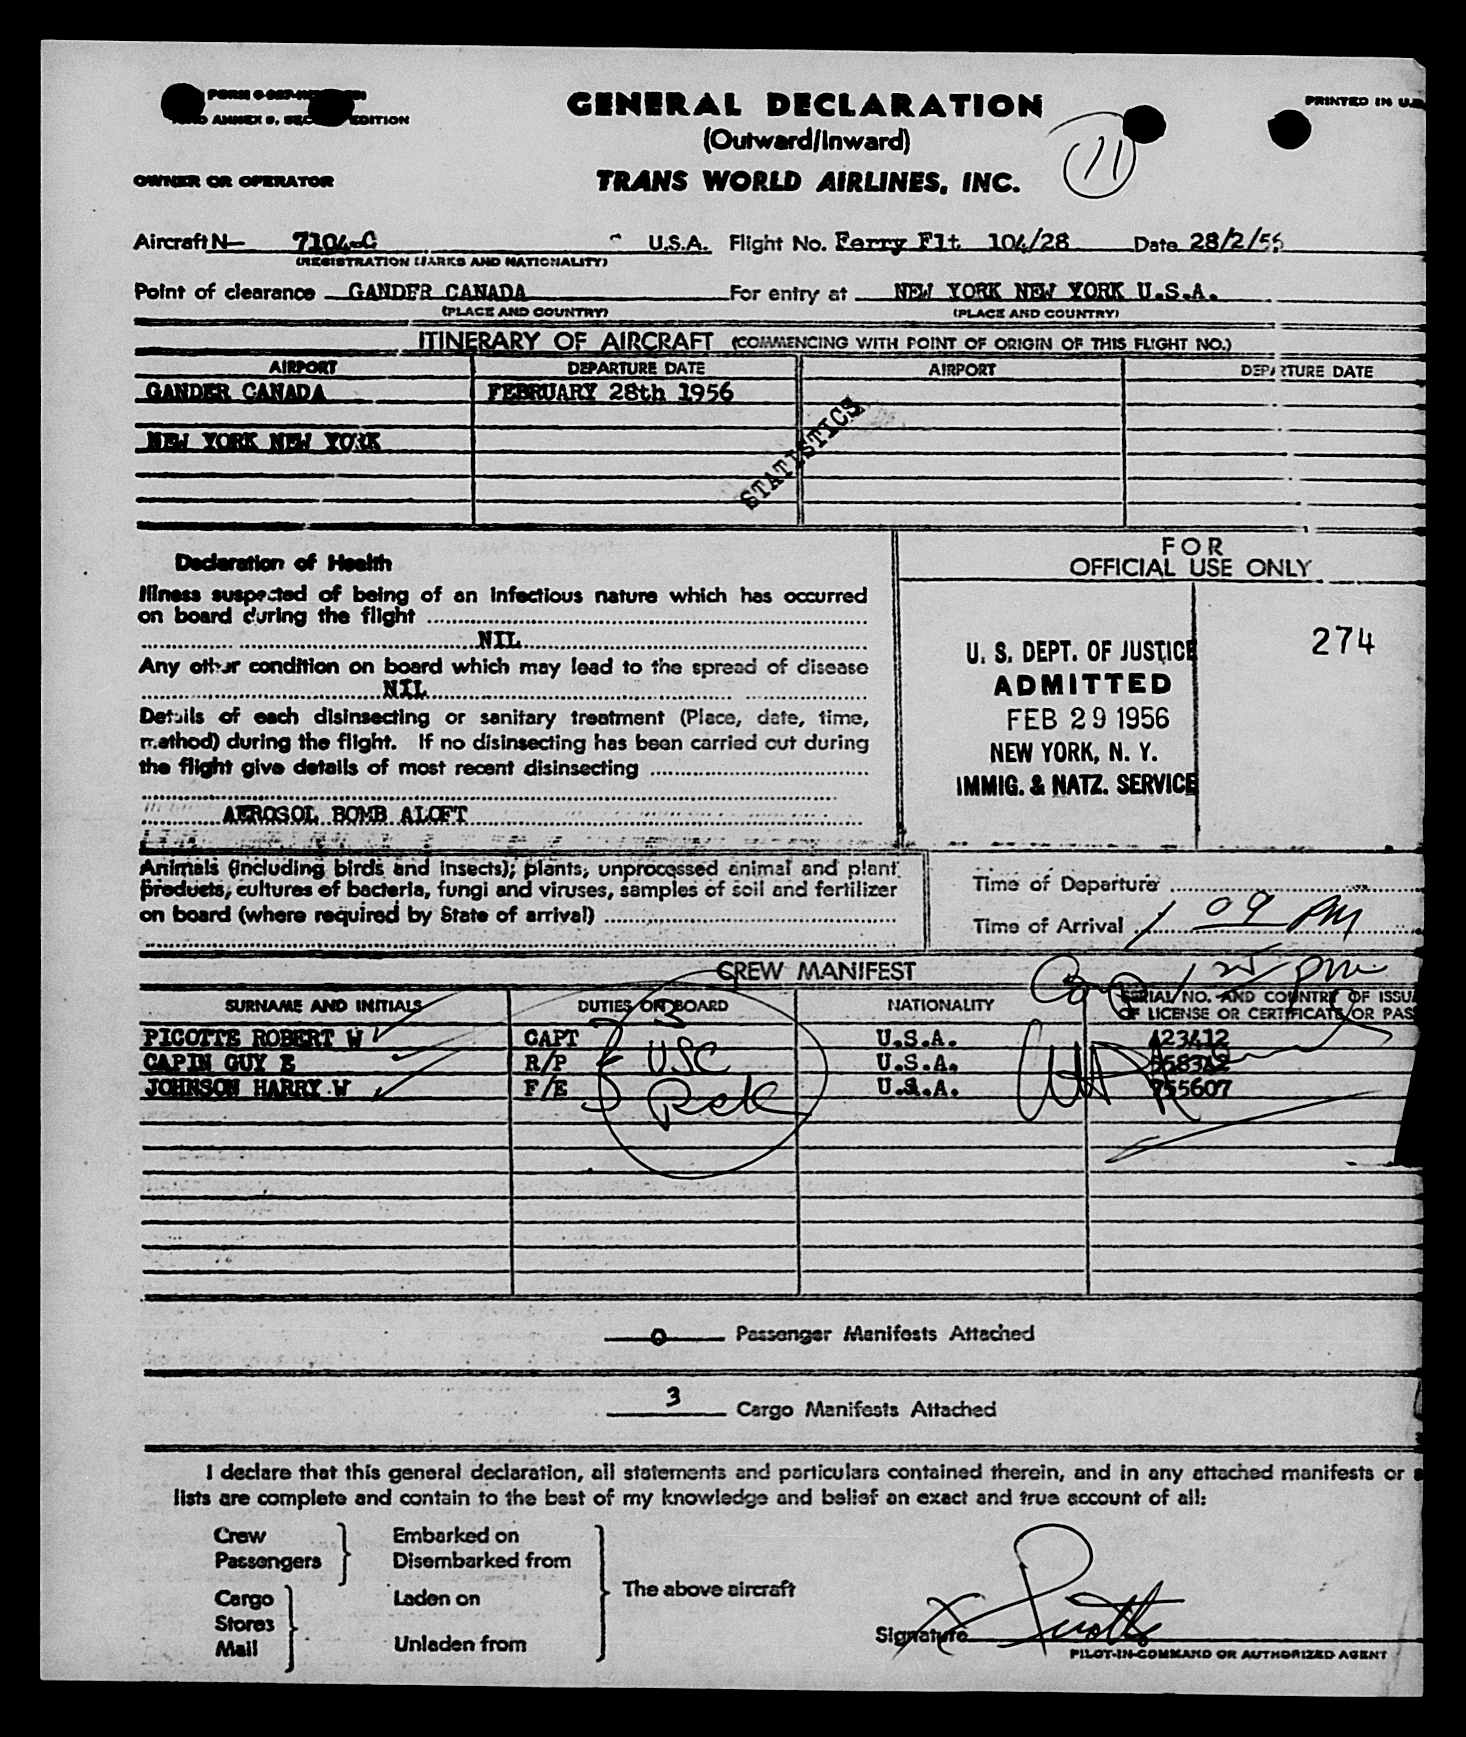 GENERAL DECLARATION
PRINTED IN U.S.
EDITION
(Outward/Inward)
11
OWNER OR OPERATOR
TRANS WORLD AIRLINES, INC.
Aircraft N— 7104-C U.S.A. Flight No. Ferry Flt 104/28 Date 28/2/56
(REGISTRATION MARKS AND NATIONALITY)
Point of clearance GANDER CANADA For entry at NEW YORK NEW YORK U.S.A.
(PLACE AND COUNTRY) (PLACE AND COUNTRY)
ITINERARY OF AIRCRAFT (COMMENCING WITH POINT OF ORIGIN OF THIS FLIGHT NO.)
AIRPORT DEPARTURE DATE AIRPORT DEPARTURE DATE
GANDER CANADA FEBRUARY 28th 1956
NEW YORK NEW YORK
STATISTICS
Declaration of Health
Illness suspected of being of an infectious nature which has occurred
on board during the flight
NIL
Any other condition on board which may lead to the spread of disease
NIL
Details of each disinsecting or sanitary treatment (Place, date, time,
method) during the flight. If no disinsecting has been carried out during
the flight give details of most recent disinsecting
AEROSOL BOMB ALOFT
FOR
OFFICIAL USE ONLY
274
U. S. DEPT. OF JUSTICE
ADMITTED
FEB 29 1956
NEW YORK, N. Y.
IMMIG. & NATZ. SERVICE
Animals (including birds and insects); plants, unprocessed animal and plant
products, cultures of bacteria, fungi and viruses, samples of soil and fertilizer
on board (where required by State of arrival)
Time of Departure
Time of Arrival 1 09 PM
1 25 pm
CREW MANIFEST
SURNAME AND INITIALS DUTIES ON BOARD NATIONALITY SERIAL NO. AND COUNTRY OF ISSU
OF LICENSE OR CERTIFICATE OR PAS
PICOTTE ROBERT W CAPT U.S.A. 423412
CAPIN GUY E R/P U.S.A.
JOHNSON HARRY W F/E U.S.A. 755607
3
USC
0 Passenger Manifests Attached
3 Cargo Manifests Attached
I declare that this general declaration, all statements and particulars contained therein, and in any attached manifests or
lists are complete and contain to the best of my knowledge and belief an exact and true account of all:
Crew Embarked on
Passengers Disembarked from
The above aircraft
Cargo Laden on
Stores
Mail Unladen from
Signature X Picotte
PILOT-IN-COMMAND OR AUTHORIZED AGENT